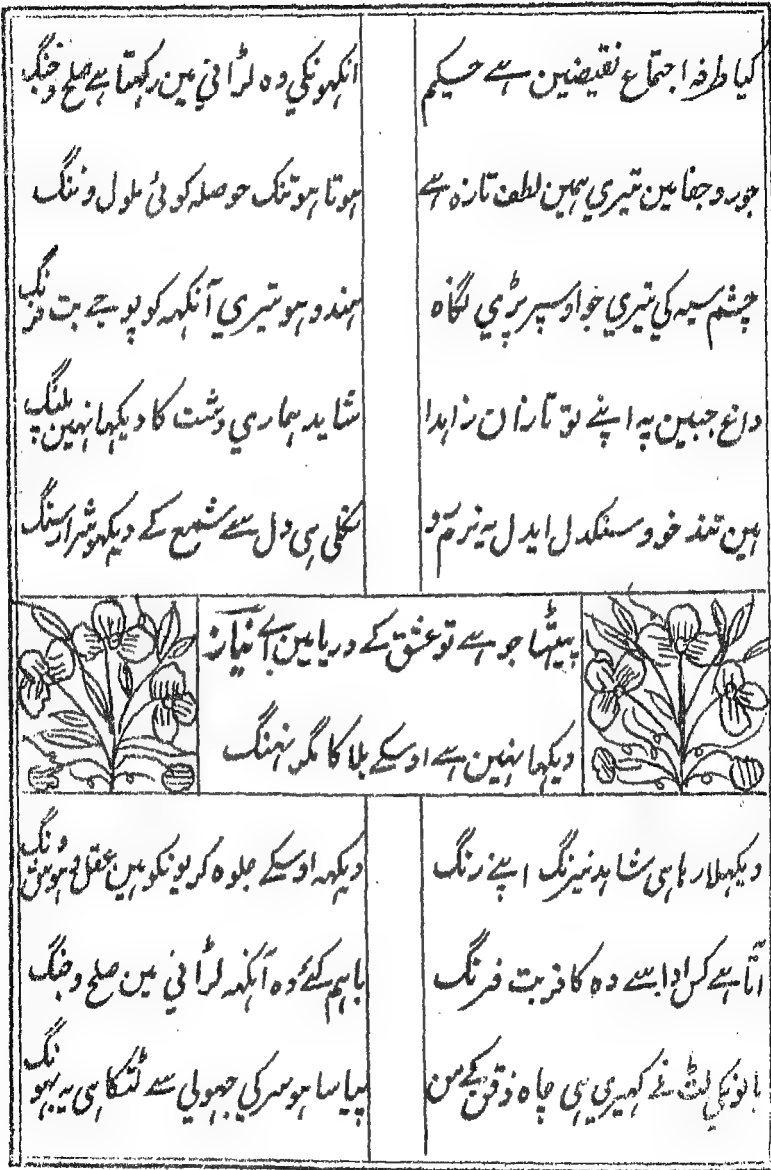 کیا طرفہ اجتماع نقیضین ہے حکیم
انکہونکی وہ لڑانی مین رکہتا ہے صلح وجنگ
جور و جفا مین تیری ہمین لطف تازہ ہے
ہوتا ہو تنک حوصلہ کوئی ملول و ننگ
چشم سیہ کی تیری جو اوسپر پڑی نگاہ
ہندو ہو تیری آنکہہ کو پوجے بت فرنگ
داغ جبین پہ اپنے تو نازان زاہدا
شاید ہماری دشت کا دیکہا نہین پلنگ
ہین تند خو و سنکدل ایدل یہ نرم
نکلی ہی دل سے شمع کے دیکہو شرار سنگ
پیٹہا جو ہے تو عشق کے دریا مین اے نیاز
دیکہا نہین ہے اوسکے بلا کا مگر نہنگ
دیکہلا رہا ہی شاہد نیرنگ اپنے رنگ
دیکہہ اوسکے جلوہ کر یونکو ہین عقل و ہوش ونگ
اتا ہے کس ادا سے وہ کافر بت فرنگ
باہم کئے وہ آنکہہ لڑانی مین صلح و جنگ
بالونکی لٹ نے کہیری ہی چاہ ذقن کے من
پیاسا ہو سر کی جہولی سے لٹکا ہی یہ بہونگ